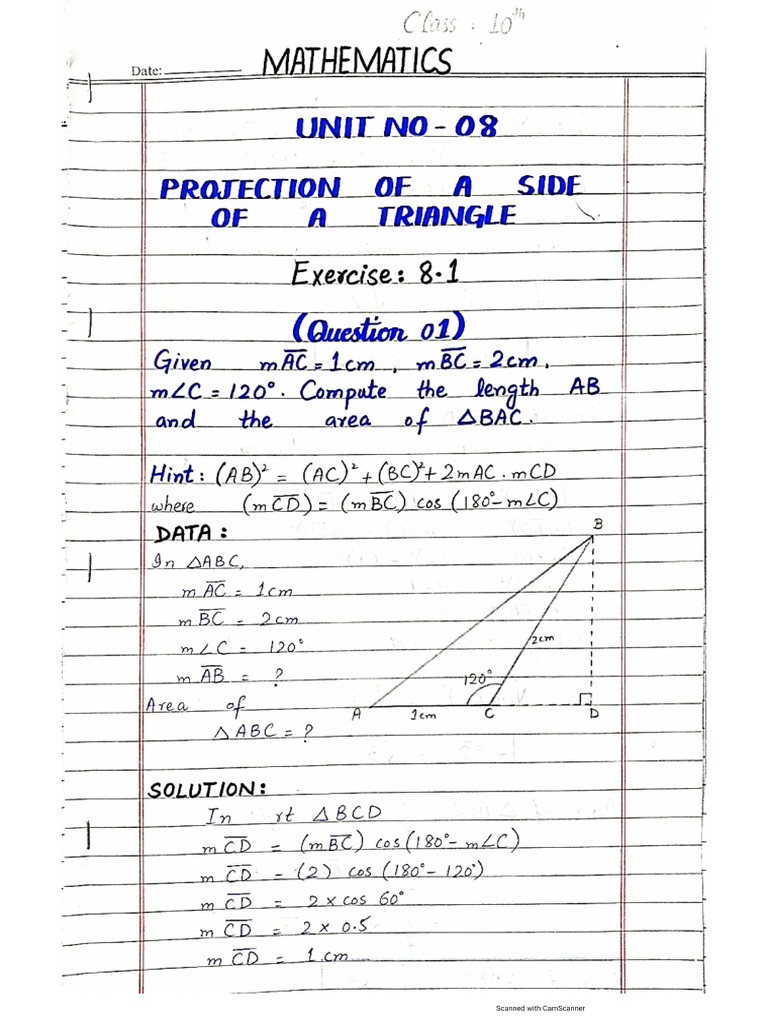 Class : 10th
Date:
MATHEMATICS
UNIT NO - 08
PROJECTION OF A SIDE
OF A TRIANGLE
Exercise: 8.1
(Question 01)
Given mAC̅ = 1cm , mBC̅ = 2cm,
m∠C = 120°. Compute the length AB
and the area of △BAC.
Hint: (AB)² = (AC)² + (BC)² + 2mAC . mCD
where (mC̅D̅) = (mB̅C̅) cos (180° - m∠C)
DATA:
In △ABC,
mA̅C̅ = 1cm
mB̅C̅ = 2cm
m∠C = 120°
mA̅B̅ = ?
Area of
△ABC = ?
B
2cm
120°
A 1cm C D
SOLUTION:
In rt △BCD
mC̅D̅ = (mB̅C̅) cos (180° - m∠C)
mC̅D̅ = (2) cos (180° - 120°)
mC̅D̅ = 2 x cos 60°
mC̅D̅ = 2 x 0.5
mC̅D̅ = 1 cm
Scanned with CamScanner